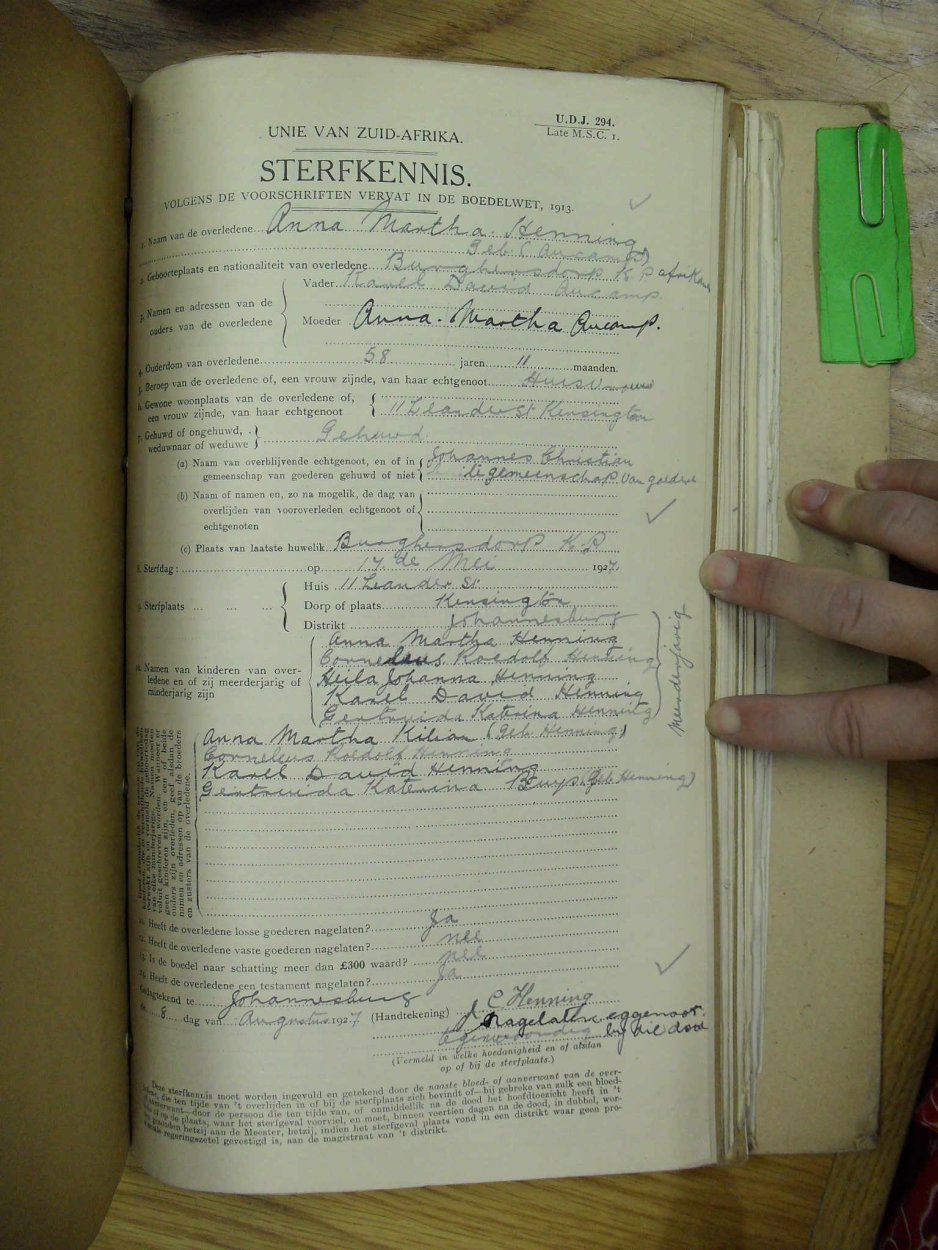 U.D.J. 294.
Late M.S.C. 1.
UNIE VAN ZUID-AFRIKA.
STERFKENNIS.
VOLGENS DE VOORSCHRIFTEN VERVAT IN DE BOEDELWET, 1913.
1. Naam van de overledene Anna Martha Henning
Geb (Aucamp)
2. Geboorteplaats en nationaliteit van overledene Burghersdorp K P afrikans
3. Namen en adressen van de ouders van de overledene
Vader Karel David Aucamp.
Moeder Anna. Martha Aucamp.
4. Ouderdom van overledene 58 jaren 11 maanden.
5. Beroep van de overledene of, een vrouw zijnde, van haar echtgenoot Huisvrouw
6. Gewone woonplaats van de overledene of,
een vrouw zijnde, van haar echtgenoot 11 Leander St Kensington
7. Gehuwd of ongehuwd,
weduwnaar of weduwe Gehuwd
(a) Naam van overblijvende echtgenoot, en of in Johannes Christian
gemeenschap van goederen gehuwd of niet gemeenschap. Van goedere
(b) Naam of namen en, zo na mogelik, de dag van
overlijden van vooroverleden echtgenoot of
echtgenoten
(c) Plaats van laatste huwelik Burghersdorp K.P
8. Sterfdag: op 17 de Mei 1927.
9. Sterfplaats
Huis 11 Leander St
Dorp of plaats Kensington
Distrikt Johannesburg
10. Namen van kinderen van over-
ledene en of zij meerderjarig of
minderjarig zijn
Anna Martha Henning
Cornelius Roedolf Henning
Heila Johanna Henning
Karel David Henning
Gertruida Katrina Henning
Meerderjarig
Anna Martha Kilian (Geb. Henning)
Corneleus Roedolf Henning
Karel David Henning
Gertruida Katerina Buys (Geb. Henning)
11. Heeft de overledene losse goederen nagelaten? Ja
12. Heeft de overledene vaste goederen nagelaten? nee
13. Is de boedel naar schatting meer dan £300 waard? nee
14. Heeft de overledene een testament nagelaten? Ja
Gedagtekend te Johannesburg
de 8 dag van Augustus 1927
(Handtekening) J C Henning
Nagelaten eggenoot.
by die dood
(Vermeld in welke hoedanigheid en of alsdan
op of bij de sterfplaats.)
Deze sterfkennis moet worden ingevuld en getekend door de naaste bloed- of aanverwant van de over-
ledene, die ten tijde van 't overlijden in of bij de sterfplaats zich bevindt of—bij gebreke van zulk een bloed-
of aanverwant—door de persoon die ten tijde van, of onmiddellik na de dood het hoofdtoezicht heeft in 't
huis of op de plaats, waar het sterfgeval voorviel, en moet, binnen veertien dagen na de dood, in dubbel, wor-
den gezonden hetzij aan de Meester, hetzij, indien het sterfgeval plaats vond in een distrikt waar geen pro-
vinciale regeringszetel gevestigd is, aan de magistraat van 't distrikt.